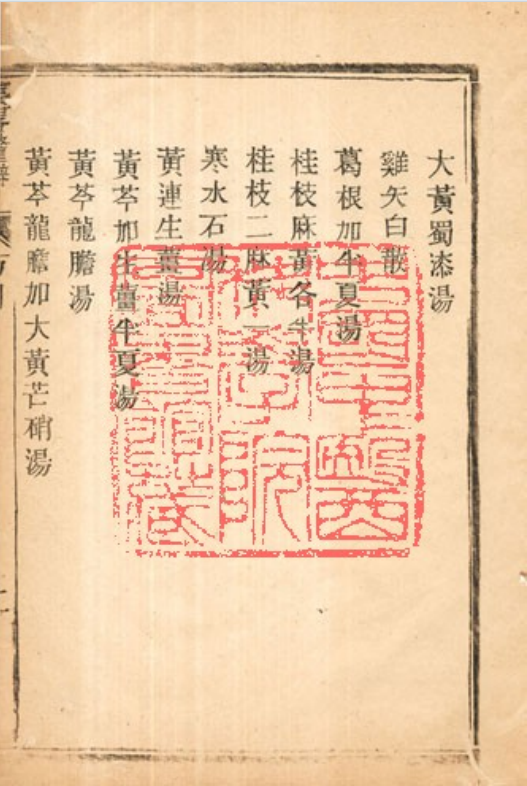 大黃蜀漆湯
雞矢白散
葛根加半夏湯
桂枝麻黃各半湯
桂枝二麻黃一湯
寒水石湯
黃連生薑湯
黃芩加生薑半夏湯
黃芩龍膽湯
黃芩龍膽加大黃芒硝湯